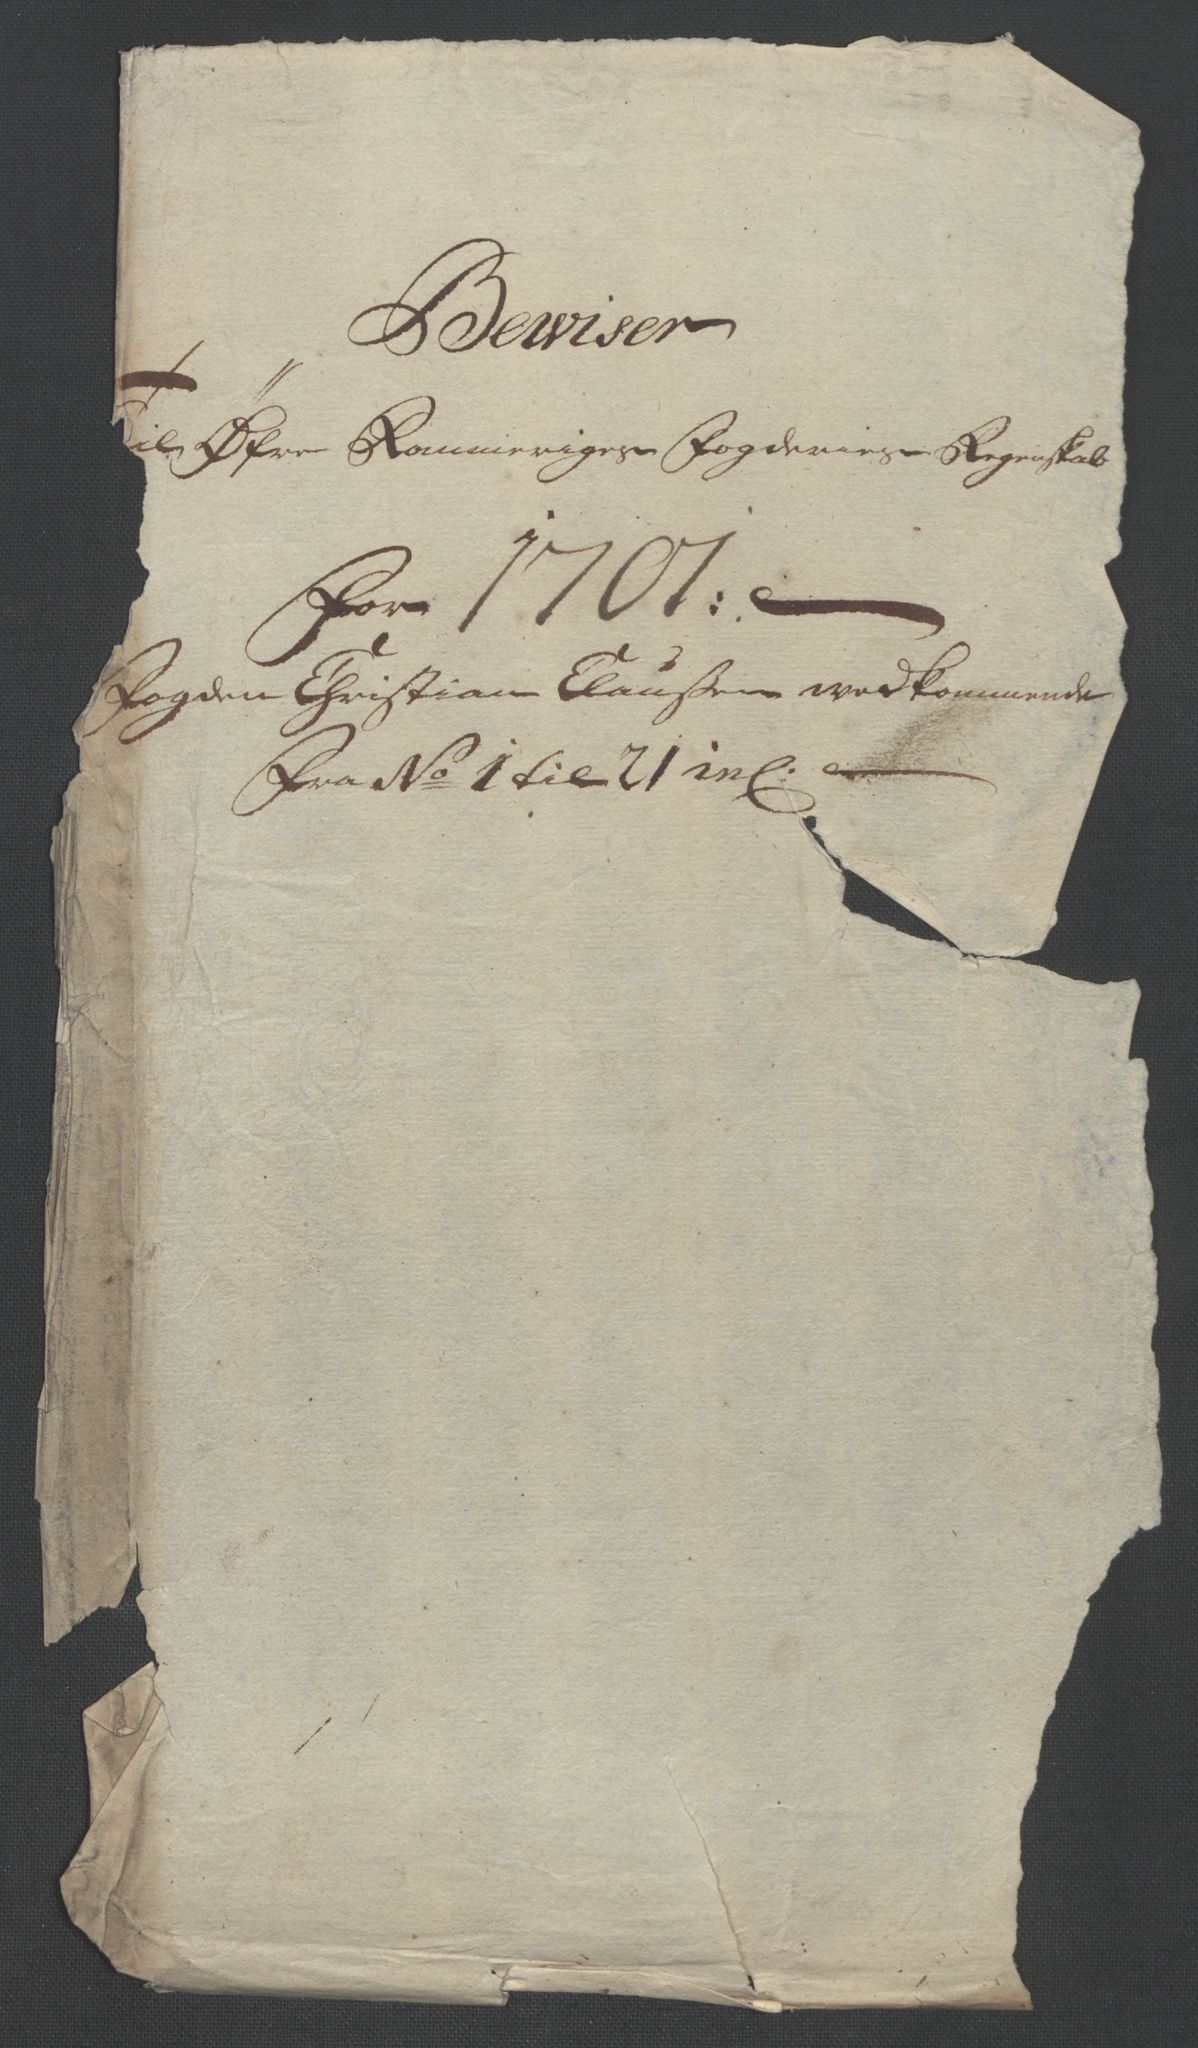 Bewiser
Til Øfre Rommeriges Fogderies Regenskab
For 1701:
Fogden Christian Claussen wedkommende
Fra No 1 til 21 incl: